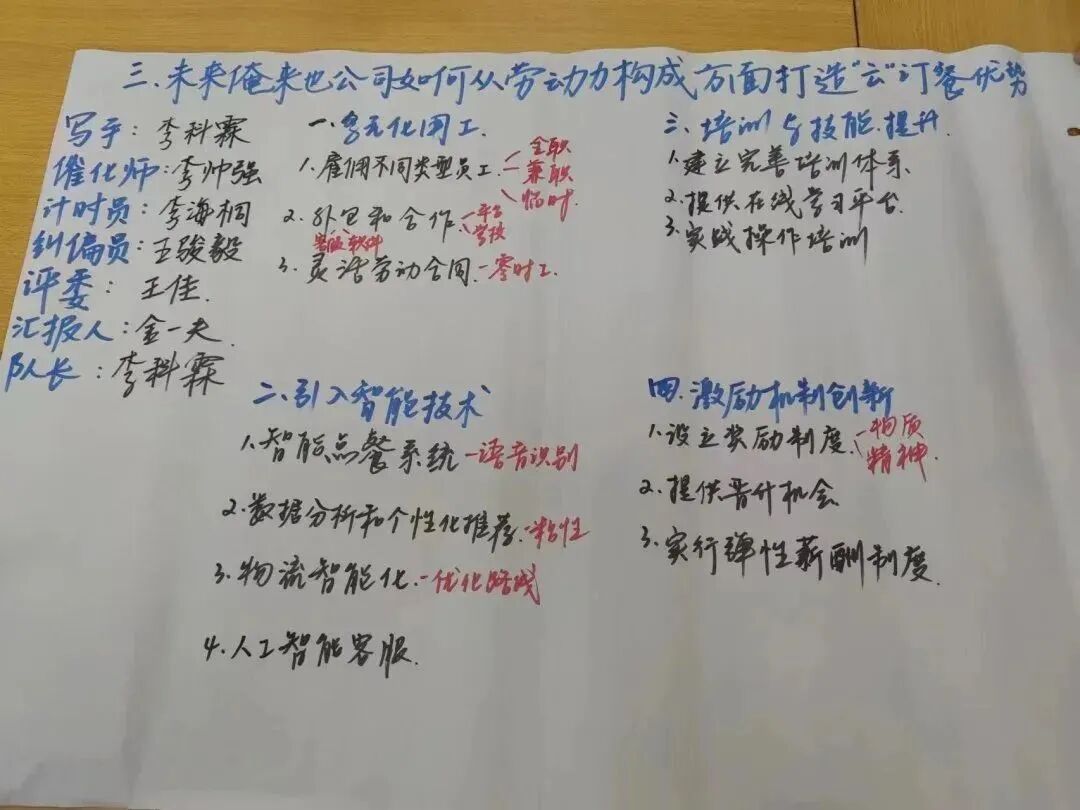 三.未来俺来也公司如何从劳动力构成方面打造“云”订餐优势
写手：李科霖
催化师：李帅强
计时员：李海桐
纠偏员：王骏毅
评委：王佳.
汇报人：金一夫.
队长：李科霖
一.多元化用工.
1.雇佣不同类型员工 - 全职
- 兼职
- 临时.
2.外包和合作 - 平台
- 学校
客服 软件
3.灵活劳动合同 - 零时工
二.引入智能技术
1.智能点餐系统 - 语音识别
2.数据分析和个性化推荐 - 粘性
3.物流智能化 - 优化路线
4.人工智能客服.
三.培训与技能提升.
1.建立完善培训体系
2.提供在线学习平台.
3.实战操作培训
四.激励机制创新
1.设立奖励制度 - 物质
精神.
2.提供晋升机会
3.实行弹性薪酬制度.